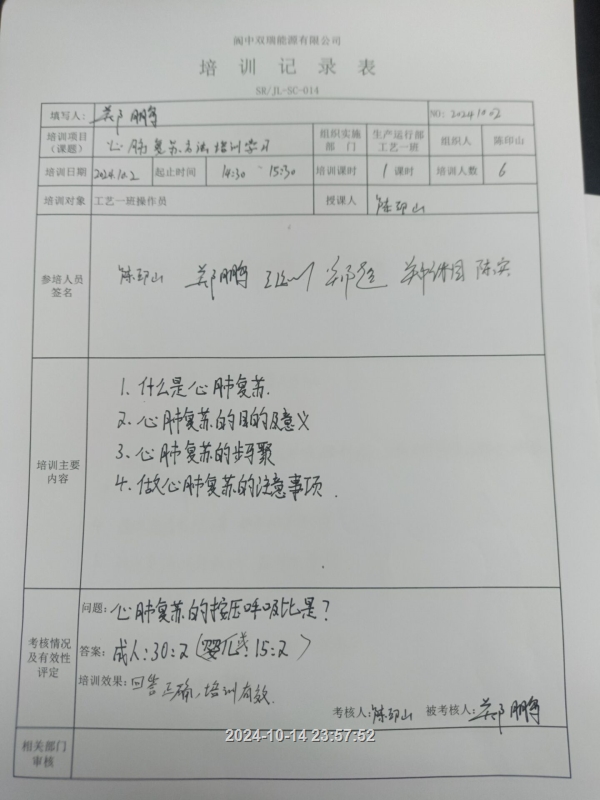 阆中双瑞能源有限公司
培训记录表
SR/JL-SC-014
填写人: 郑鹏 NO: 20241002
培训项目（课题） 心肺复苏方法培训学习 组织实施部门 生产运行部工艺一班 组织人 陈印山
培训日期 2024.10.2 起止时间 14:30 15:30 培训课时 1课时 培训人数 6
培训对象 工艺一班操作员 授课人 陈印山
参培人员签名 陈印山 郑鹏
培训主要内容
1. 什么是心肺复苏.
2、心肺复苏的目的及意义
3、心肺复苏的步骤
4、做心肺复苏的注意事项.
考核情况及有效性评定
问题: 心肺复苏的按压呼吸比是?
答案: 成人:30:2(婴儿:15:2)
培训效果: 回答正确,培训有效.
考核人: 陈印山 被考核人: 郑鹏
2024-10-14 23:57:52
相关部门审核